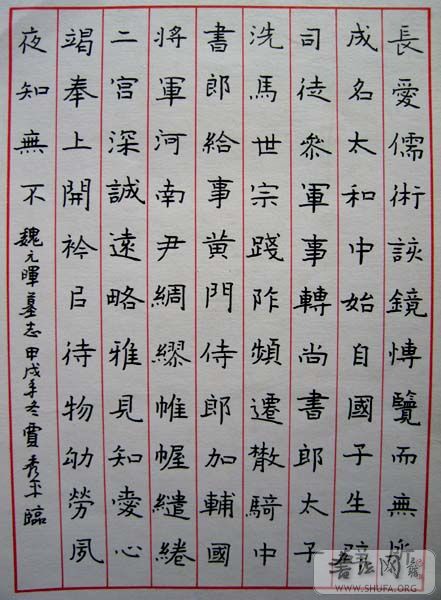 長愛儒術該鏡博覽而無所
成名太和中始自國子生辟
司徒參軍事轉尚書郎太子
洗馬世宗踐阼頻遷散騎中
書郎給事黃門侍郎加輔國
將軍河南尹綢繆帷幄繾綣
二宮深誠遠略雅見知愛心
竭奉上開衿㠯待物劬勞夙
夜知無不 魏元暉墓志 甲戌年冬 賈秀平 臨
書法网
WWW.SHUFA.ORG